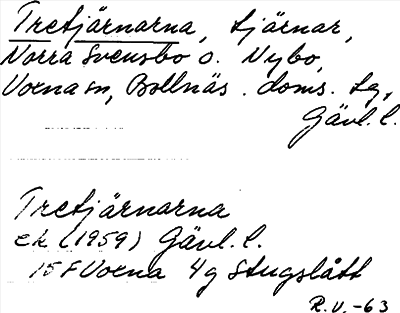 Tretjärnarna, tjärnar,
Norra Svensbo o. Nybo,
Voxna sn, Bollnäs . doms. tg,
Gävl. l.
Tretjärnarna
ek (1959) Gävl. l.
15 F Voxna 4g Stugslått
R.V. -63